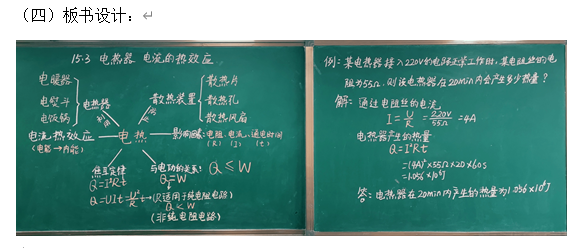 （四）板书设计：
15.3 电热器 电流的热效应
电暖器
电熨斗
电饭锅
电热器
利用
散热装置
散热片
散热孔
散热风扇
电流热效应
(电能→内能)
电热
影响因素：电阻、电流、通电时间
(R) (I) (t)
焦耳定律
Q=I²Rt
Q=UIt=U²/R t→(只适用于纯电阻电路)
与电功的关系：Q≤W
Q=W
Q<W
(非纯电阻电路)
例：某电热器接入220V的电路正常工作时，某电阻丝的电
阻为55Ω，则该电热器在20min内会产生多少热量？
解：通过电阻丝的电流
I=U/R=220V/55Ω=4A
电热器产生的热量
Q=I²Rt
=(4A)²×55Ω×20×60s
=1.056×10⁶J
答：电热器在20min内产生的热量为1.056×10⁶J